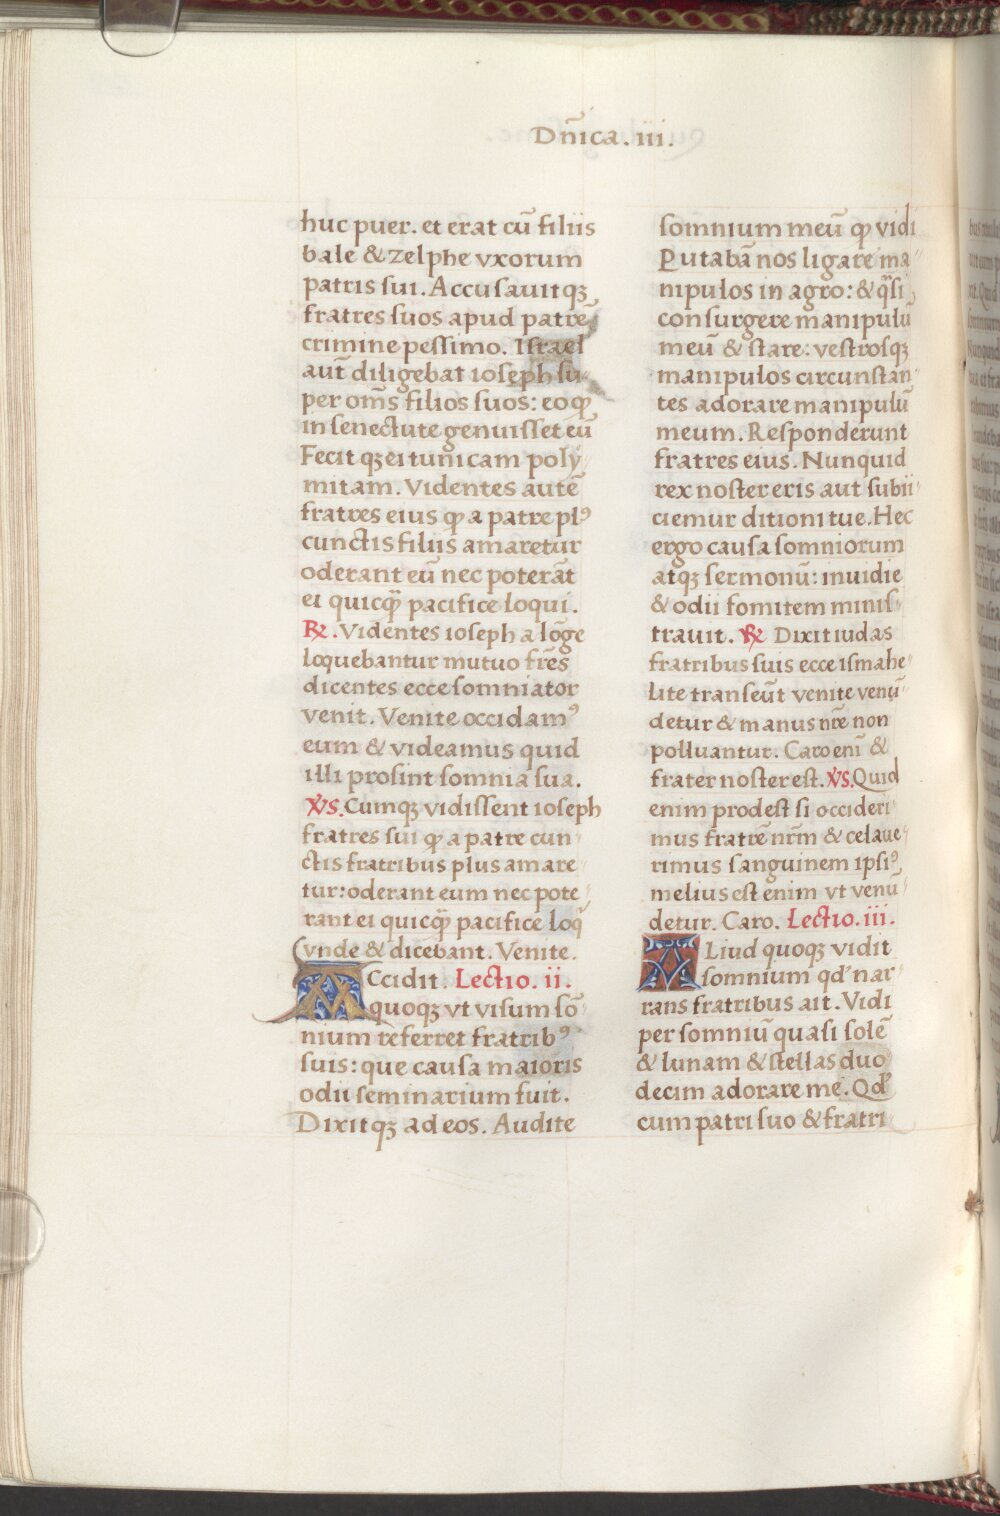 Dñica.iii.
huc puer. et erat cū filiis
bale & zelphe vxorum
patris sui. Accusauitqꝫ
fratres suos apud patrē
crimine pessimo. Israel
aut̄ diligebat ioseph su-
per om̄s filios suos: eo ꝙ
in senectute genuisset eū
Fecit qꝫ ei tunicam poly-
mitam. Videntes autē
fratres eius ꝙ a patre plꝰ
cunctis filiis amaretur
oderant eū nec poterāt
ei quicq̄ pacifice loqui.
℞.Videntes ioseph a lōge
loquebantur mutuo fr̄es
dicentes ecce somniator
venit. Venite occidamꝰ
eum & videamus quid
illi prosint somnia sua.
Vs.Cumqꝫ vidissent ioseph
fratres sui ꝙ a patre cun-
ctis fratribus plus amare-
tur: oderant eum nec pote-
rant ei quicq̄ pacifice loq̄
vnde & dicebant. Venite.
Accidit. Lectio. ii.
quoqꝫ vt visum sō-
nium referret fratribꝰ
suis: que causa maioris
odii seminarium fuit.
Dixitqꝫ ad eos. Audite
somnium meū ꝙ vidi
Putabā nos ligare ma-
nipulos in agro: & q̄si
consurgere manipulū
meū & stare: vestrosqꝫ
manipulos circunstan-
tes adorare manipulū
meum. Responderunt
fratres eius. Nunquid
rex noster eris aut subii-
ciemur ditioni tue. Hec
ergo causa somniorum
atqꝫ sermonū: inuidie
& odii fomitem minis-
trauit. ℞ Dixit iudas
fratribus suis ecce ismahe-
lite transeūt venite venū-
detur & manus nr̄e non
polluantur. Caro eni̅ &
frater noster est. Vs.Quid
enim prodest si occideri-
mus fratrē nr̄m & celaue-
rimus sanguinem ipsiꝰ
melius est enim vt venū-
detur. Caro. Lectio. iii.
Aliud quoqꝫ vidit
somnium qd' nar-
rans fratribus ait. Vidi
per somniū quasi solē
& lunam & stellas duo
decim adorare me. Qd'
cum patri suo & fratri-